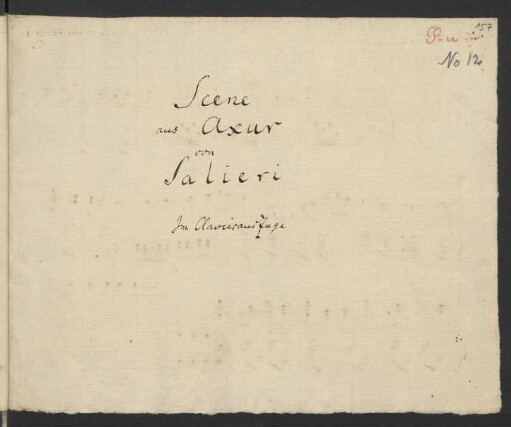 157
No 12
Scene
aus Axur
von
Salieri
Im Clavierauszuge